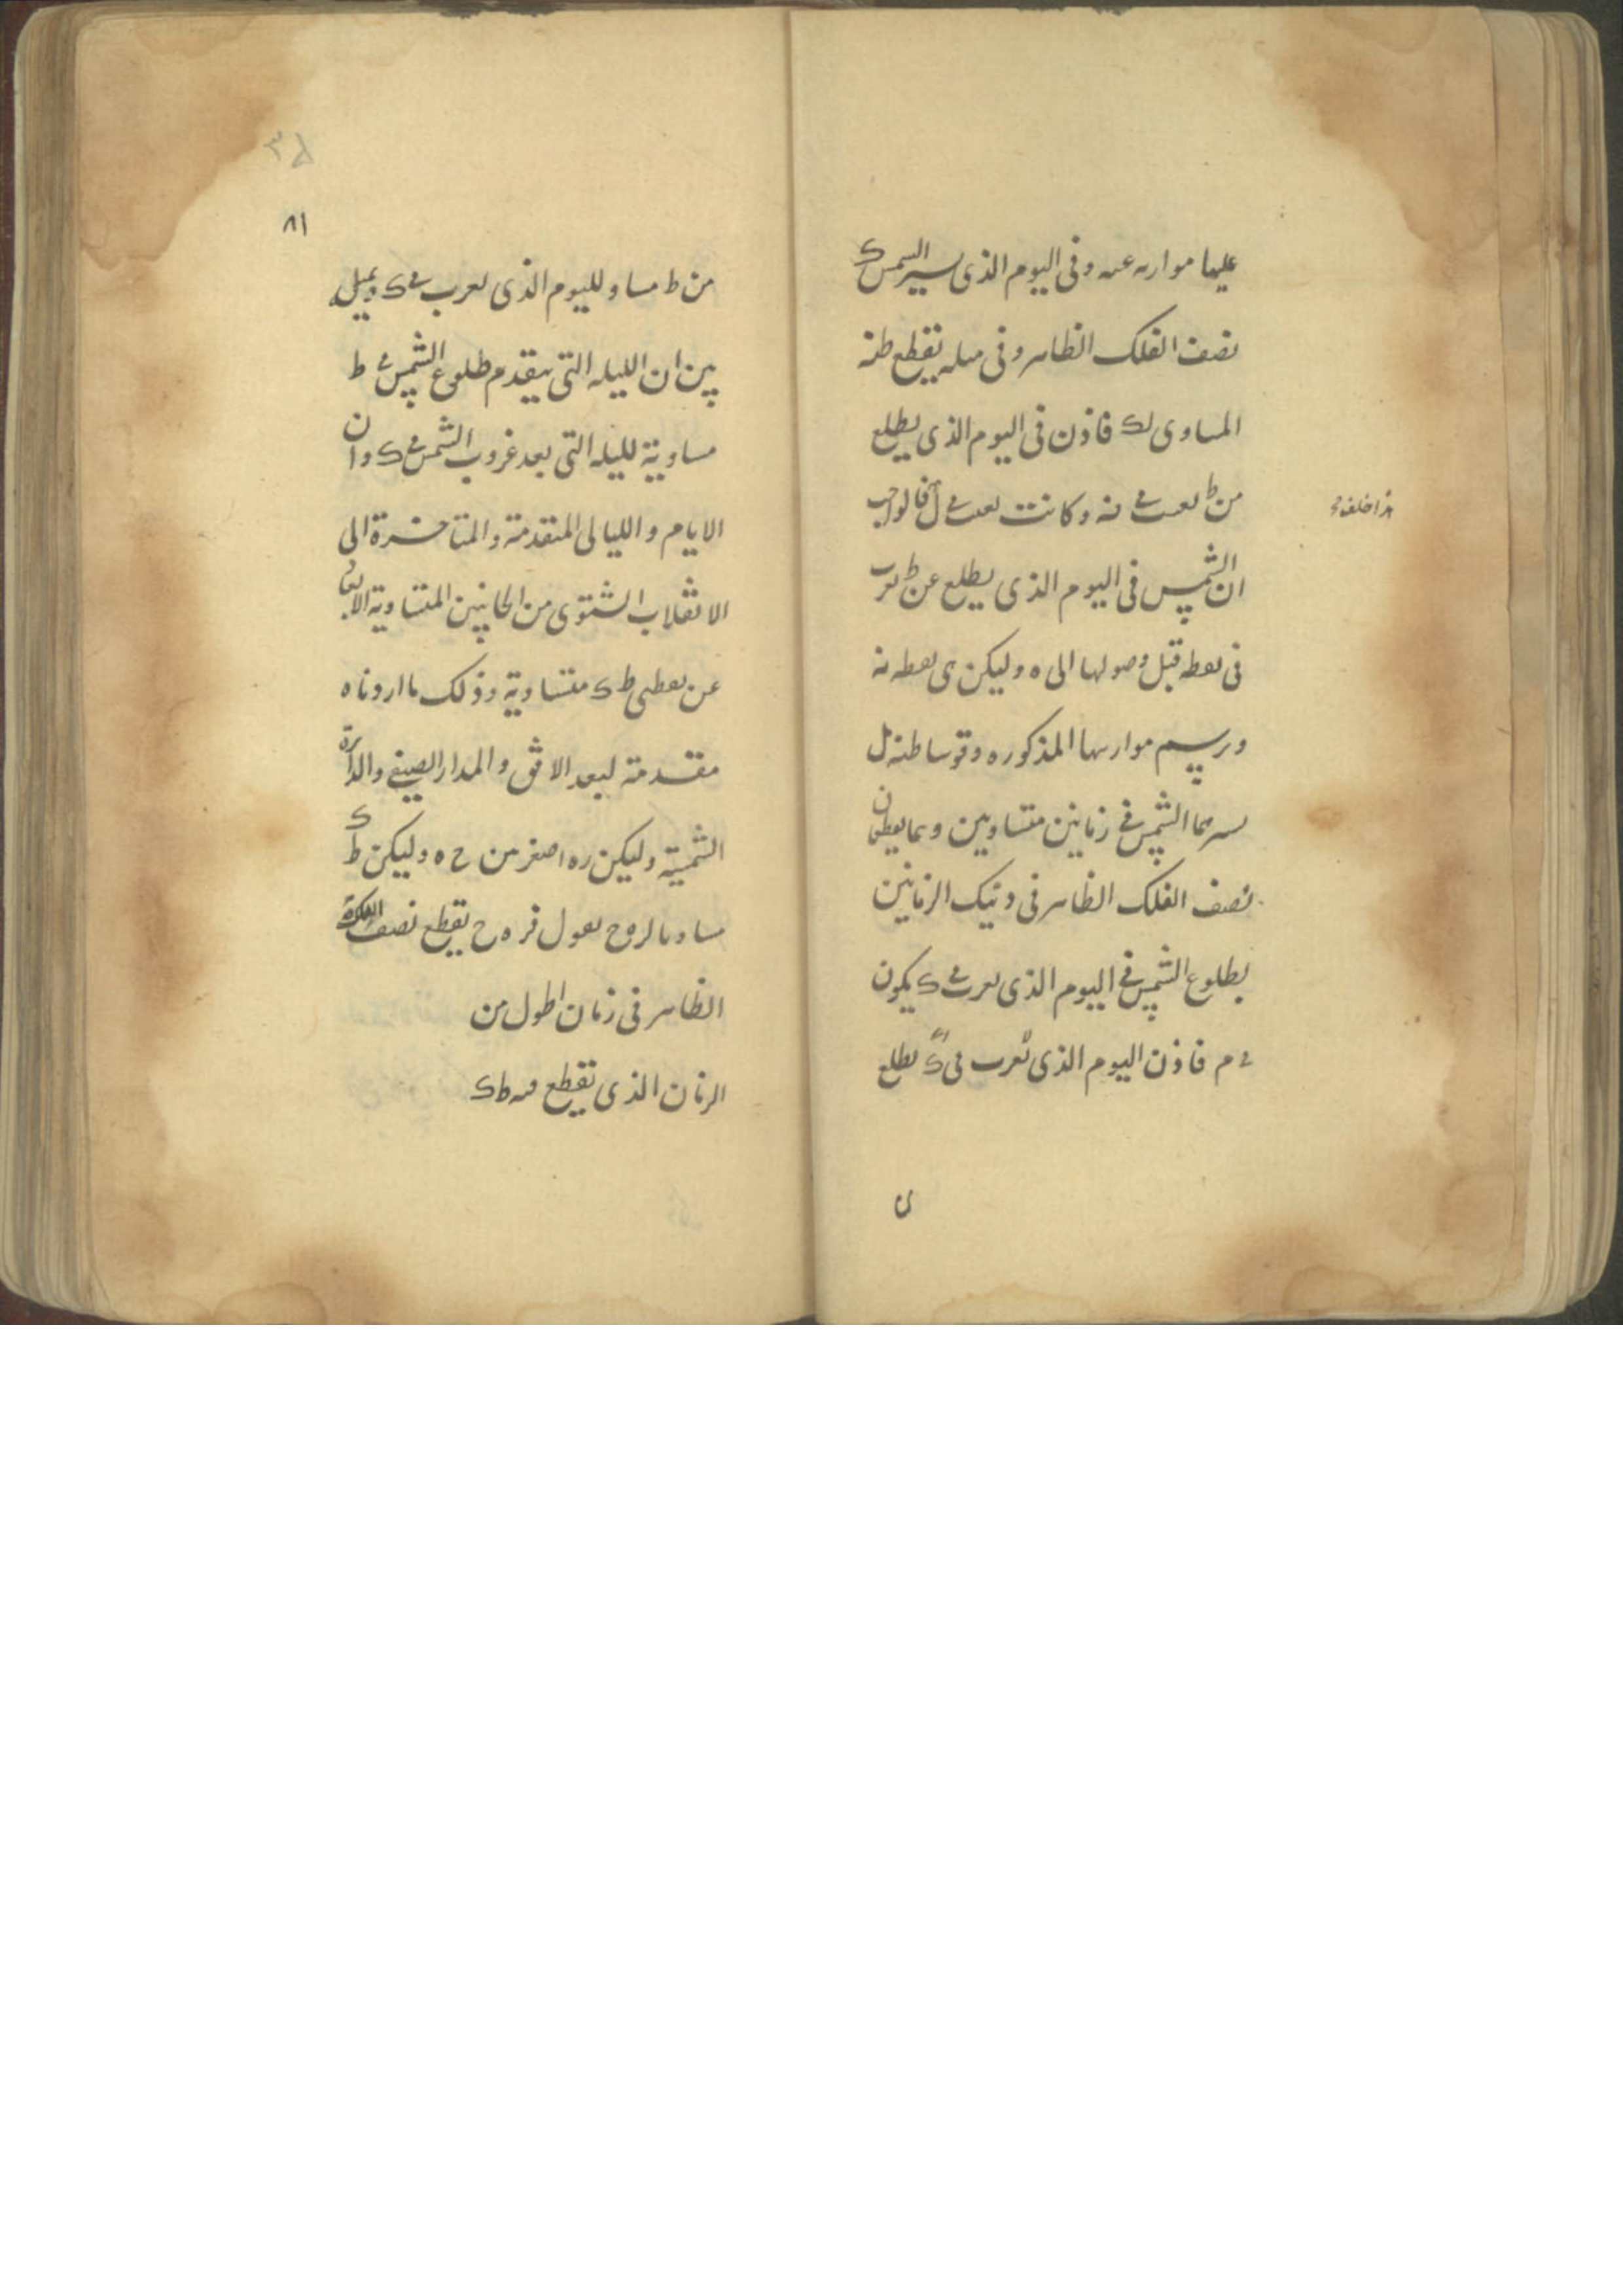 عليها موازيه عنه وفى اليوم الذى يسير الشمس ک
نصف الفلك الظاهر وفى مثله يقطع طنه
المساوى لک فاذن فى اليوم الذى يطلع
من ط نعيب فى نه وكانت تغيب فى ل فالواجب
هذا خلف
ان الشمس فى اليوم الذى يطلع عن ط تغرب
فى نقطه قبل وصولها الى ه وليكن ى نقطه نه
ونرسم موازيها المذكوره وقوسا طنه ل
يسيرهما الشمس فى زمانين متساويين وهما يقطعان
نصف الفلك الظاهر فى ذينك الزمانين
بطلوع الشمس فى اليوم الذى تغرب فى ک يكون
فى م فاذن اليوم الذى تغرب فى ک يطلع
ے
٨١
من ط مساو لليوم الذى تغرب فى ک وبمثل
يبين ان الليله التى يتقدم طلوع الشمس فى ط
مساوية لليله التى بعد غروب الشمس فى ک وان
الايام والليالى المتقدمة والمتاخرة الى
الانقلاب الشتوى من الجانبين المتساوية الابعاد
عن نقطتى ط ک متساوية وذلك ما اردناه
مقدمة لبعد الافق والمدار الصيفى والدائرة
الشمسية وليكن ره اصغر من ح ه وليكن ط ک
مساويا لزوح نقول فر ه ح يقطع نصف الكرة
الظاهر فى زمان اطول من
الزمان الذى تقطع فيه ط ک